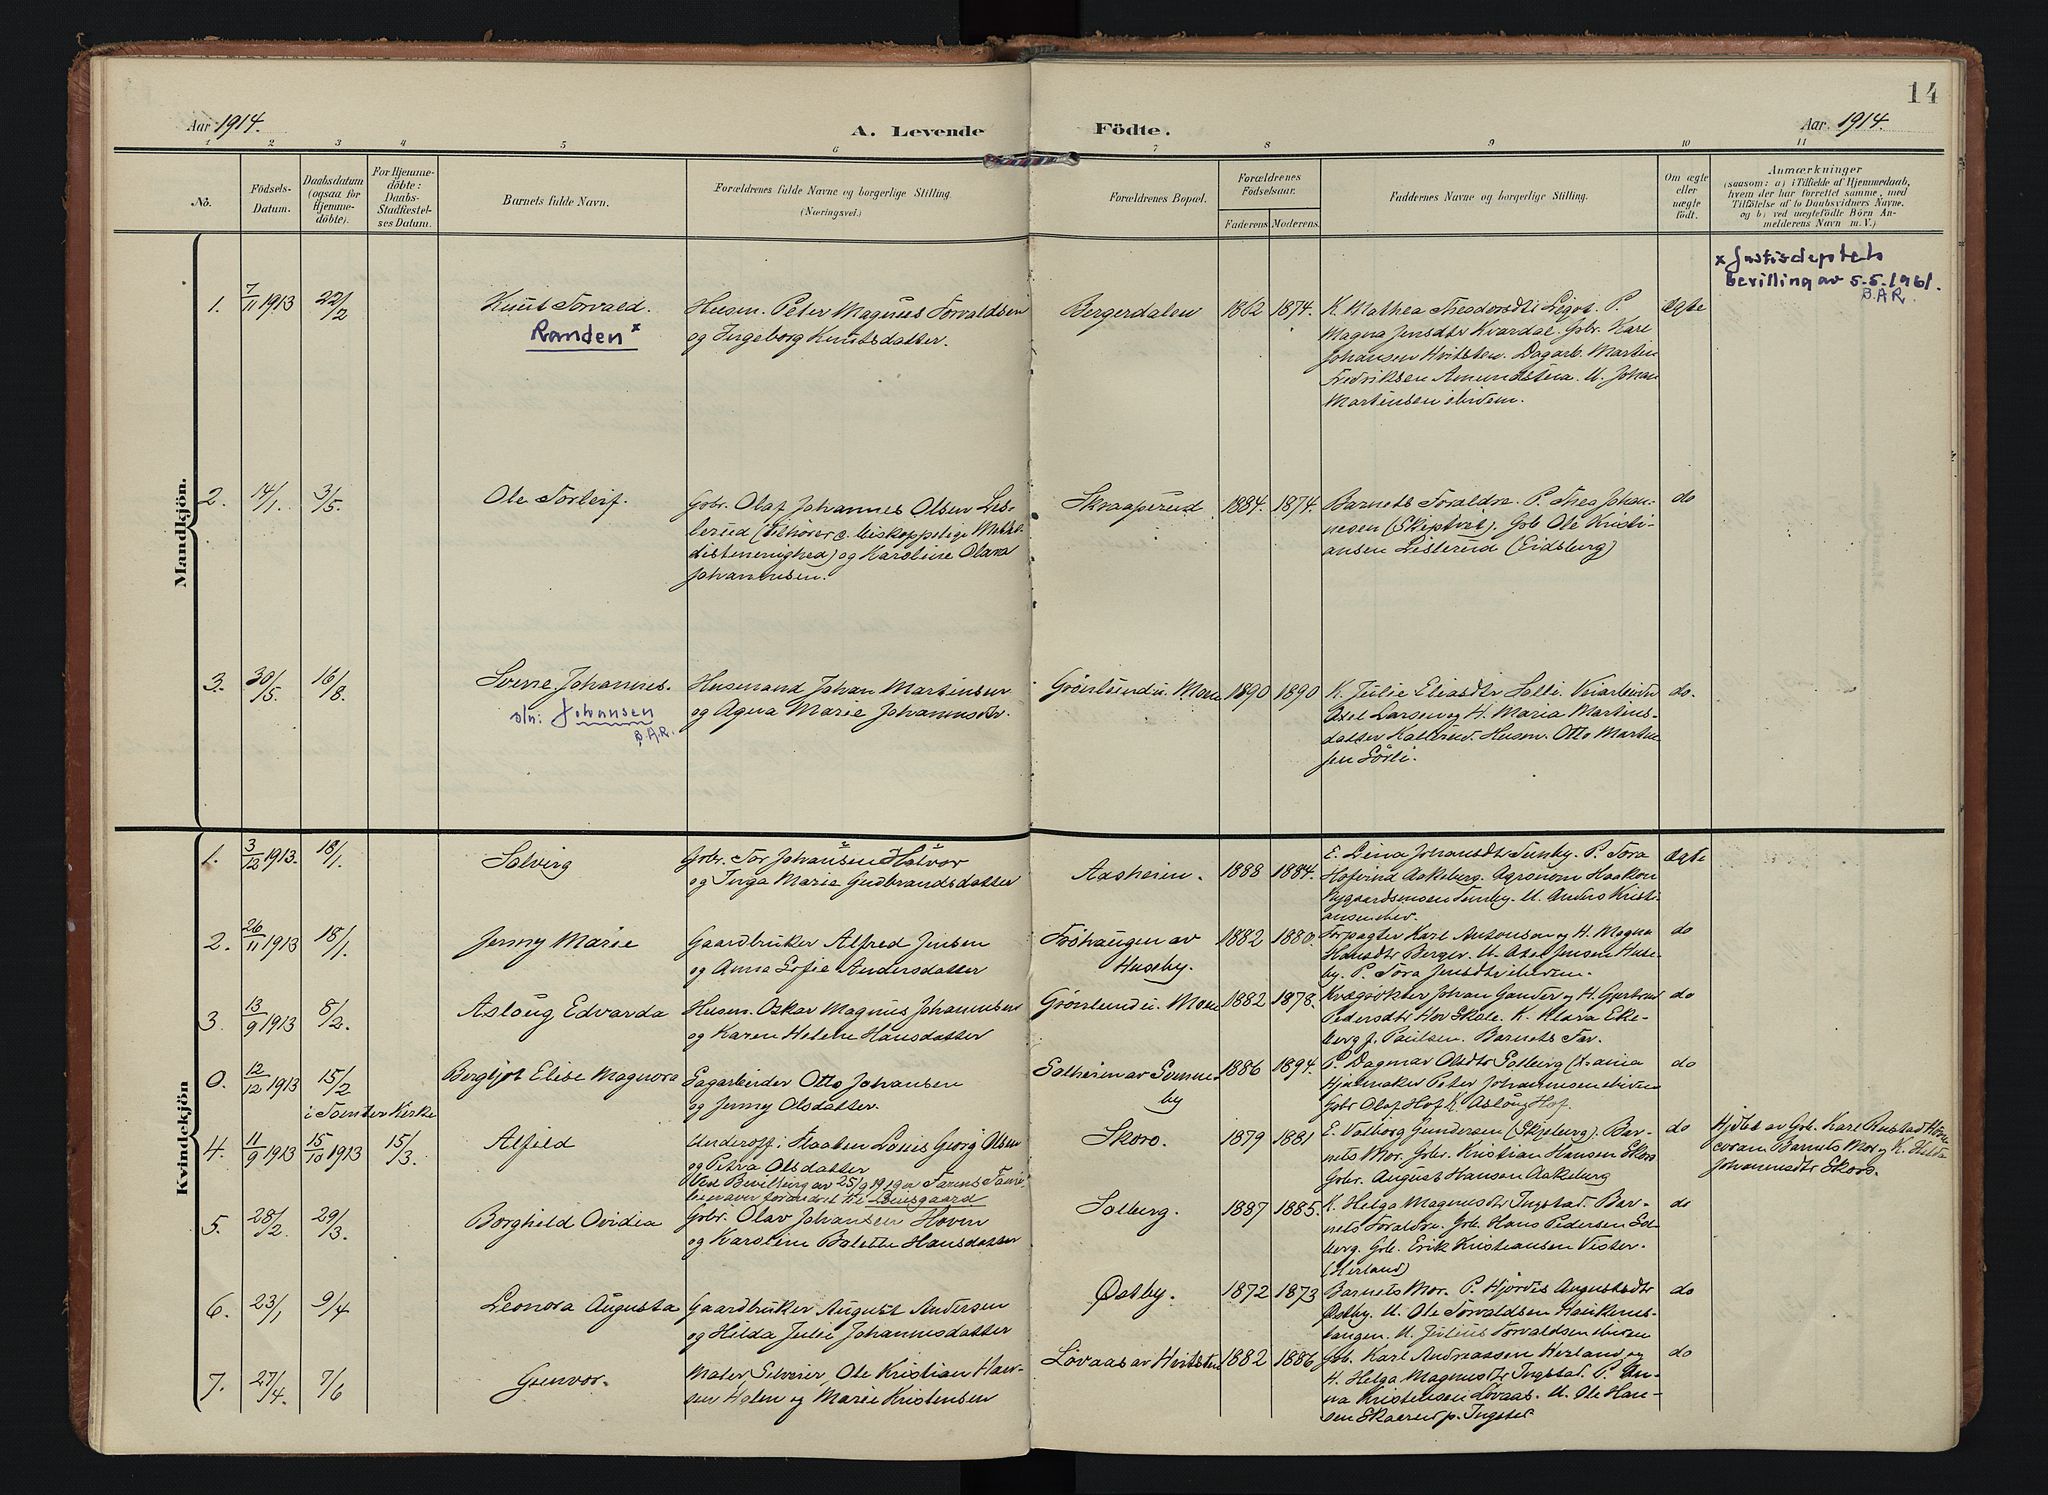 14
Aar 1914.
A. Levende
Födte.
Aar 1914.
1 2 3 4 5 6 7 8 9 10 11
No.
Födsels-
Datum.
Daabsdatum
(ogsaa for
Hjemme-
döbte).
For Hjemme-
döbte:
Daabs-
Stadfæstel-
ses Datum.
Barnets fulde Navn.
Forældrenes fulde Navne og borgerlige Stilling.
(Næringsvei.)
Forældrenes Bopæl.
Forældrenes
Födselsaar.
Faderens Moderens.
Faddernes Navne og borgerlige Stilling.
Om ægte
eller
uægte
födt.
Anmærkninger
(saasom: a) i Tilfælde af Hjemmedaab,
hvem der har forrettet samme, med
Tilföielse af to Daabsvidners Navne.
og b) ved uægtefödte Börn An-
melderens Navn m. V.)
Mandkjön.
1. 7/11 1913 22/2
Knut Torvald.
Randen x
Husm. Peter Magnus Torvaldsen
og Ingeborg Knutsdatter.
Bergerdalen 1862 1874.
K. Mathea Theodorsdtr P.
Magna Jensdtr Kvardal. Gbr. Karl
Johansen Hvitsten. Dagarb. Martin
Fredriksen Amundstua. U. Johan
Martinsen ibidem.
Ægte
x Justisdeptets
bevilling av 5.5.1961.
B.A.R.
2. 14/1 3/5.
Ole Torleif.
Gbr. Olaf Johannes Olsen Lis-
lerud (tilhører d. biskoppelige Metho-
distmenighed) og Karoline Olava
Johannesen.
Skraaperud 1884. 1874.
Barnets Forældre. P. Thea Johan-
nesen (Skiptvet). Gbr. Ole Kristi-
ansen Lislerud (Eidsberg)
do
3. 30/5. 16/8.
Sverre Johannes.
sln: Johansen
B.A.R.
Husmand Johan Martinsen
og Agna Marie Johannsdtr.
Grönlund u. Moen 1890 1890
K. Julie Eliasdtr Veiarbeider
Axel Larsen og H. Maria Martins-
datter Kallerud. Husm. Otto Martin-
sen Sörli.
do.
Kvindekjön
1. 3/12 1913. 18/1.
Solveig
Gbr. Tor Johansen Halvor
og Inga Marie Gudbrandsdatter
Aasheim. 1888 1884.
E. Lina Johansdtr Tenby. P. Tora
Hofvind Askeberg. Agronom Haakon
Nygaardsmoen Tenby. U. Anders Kristi-
ansen
Ægte
2. 26/11 1913 18/1.
Jenny Marie
Gaardbruker Alfred Jensen
og Anna Sofie Andersdatter
Fröhaugen av
Huseby.
1882 1880.
Forpagter Karl Antonsen og H. Magna
Hansdtr Berger. U. Axel Jensen Huse-
by. P. Tora Jensdtr ibidem.
do
3. 13/9 1913 8/2.
Aslaug Edvarda
Husm. Oskar Magnus Johannesen
og Karen Helene Hansdatter
Grönlund u. Moen 1882 1878.
Kvægrökter Johan Gander og H. Gjertrud
Pedersdtr Hov Skole. K. Klara Eke-
berg f. Paulsen. Barnets Far.
do
0. 12/12 1913 15/2
i Tomter Kirke
Bergljot Elise Magnora
Sagarbeider Otto Johansen
og Jenny Olsdatter.
Solheim av Svenne-
by
1886 1894.
P. Dagmar Olsdtr Solberg
Hjulmaker Peter Johannesen ibidem
Gbr Olaf Hof. K. Aslaug Hof.
do
4. 11/9 1913 15/10 1913 15/3.
Alfild
Underoff. i Staaten Louis Georg Olsen
og Petra Olsdatter
Ved Bevilling av 25/9 1919 er Farens Fami-
lienavn forandret til Buisgaard
Skoro. 1879 1881
E. Valborg Gundersen (Skjeberg). Bar-
nets Mor. Gbr. Kristian Hansen Skoro
Gbr. August Hansen Askeberg
do
Hjdbt av Gbr. Karl Rustad
ovran Barnets Mor og K. Hilda
Johannesdtr Skoro.
5. 28/2. 29/3.
Borghild Ovidia
Gbr. Olav Johansen Hovin
og Karoline Bolette Hansdatter
Solberg. 1887 1885.
K. Helga Magnusdtr Ingstad. Bar-
nets Foraldre. Gbr. Hans Pedersen Sol-
berg. Gbr. Erik Kristiansen Vister.
(Herland)
do
6. 23/1 9/4
Leonora Augusta
Gaardbruker August Andersen
og Hilda Julie Johannesdatter
Østby. 1872 1873
Barnets Mor. P. Hjördis Augustsdtr
Østby. U. Ole Torvaldsen Haukenes-
tangen. U. Julius Torvaldsen ibidem
do
7. 27/4. 7/6
Gunvor.
Maler Ole Kristian Han-
sen Holen og Marie Kristensen
Lövaas av Hvitsten 1882 1886
Gbr. Karl Andreassen Herland og
H. Helga Magnusdtr Ingstad. P. An-
na Kristensen Lövaas. U. Ole Han-
sen Skaarud p. Ingstad
do